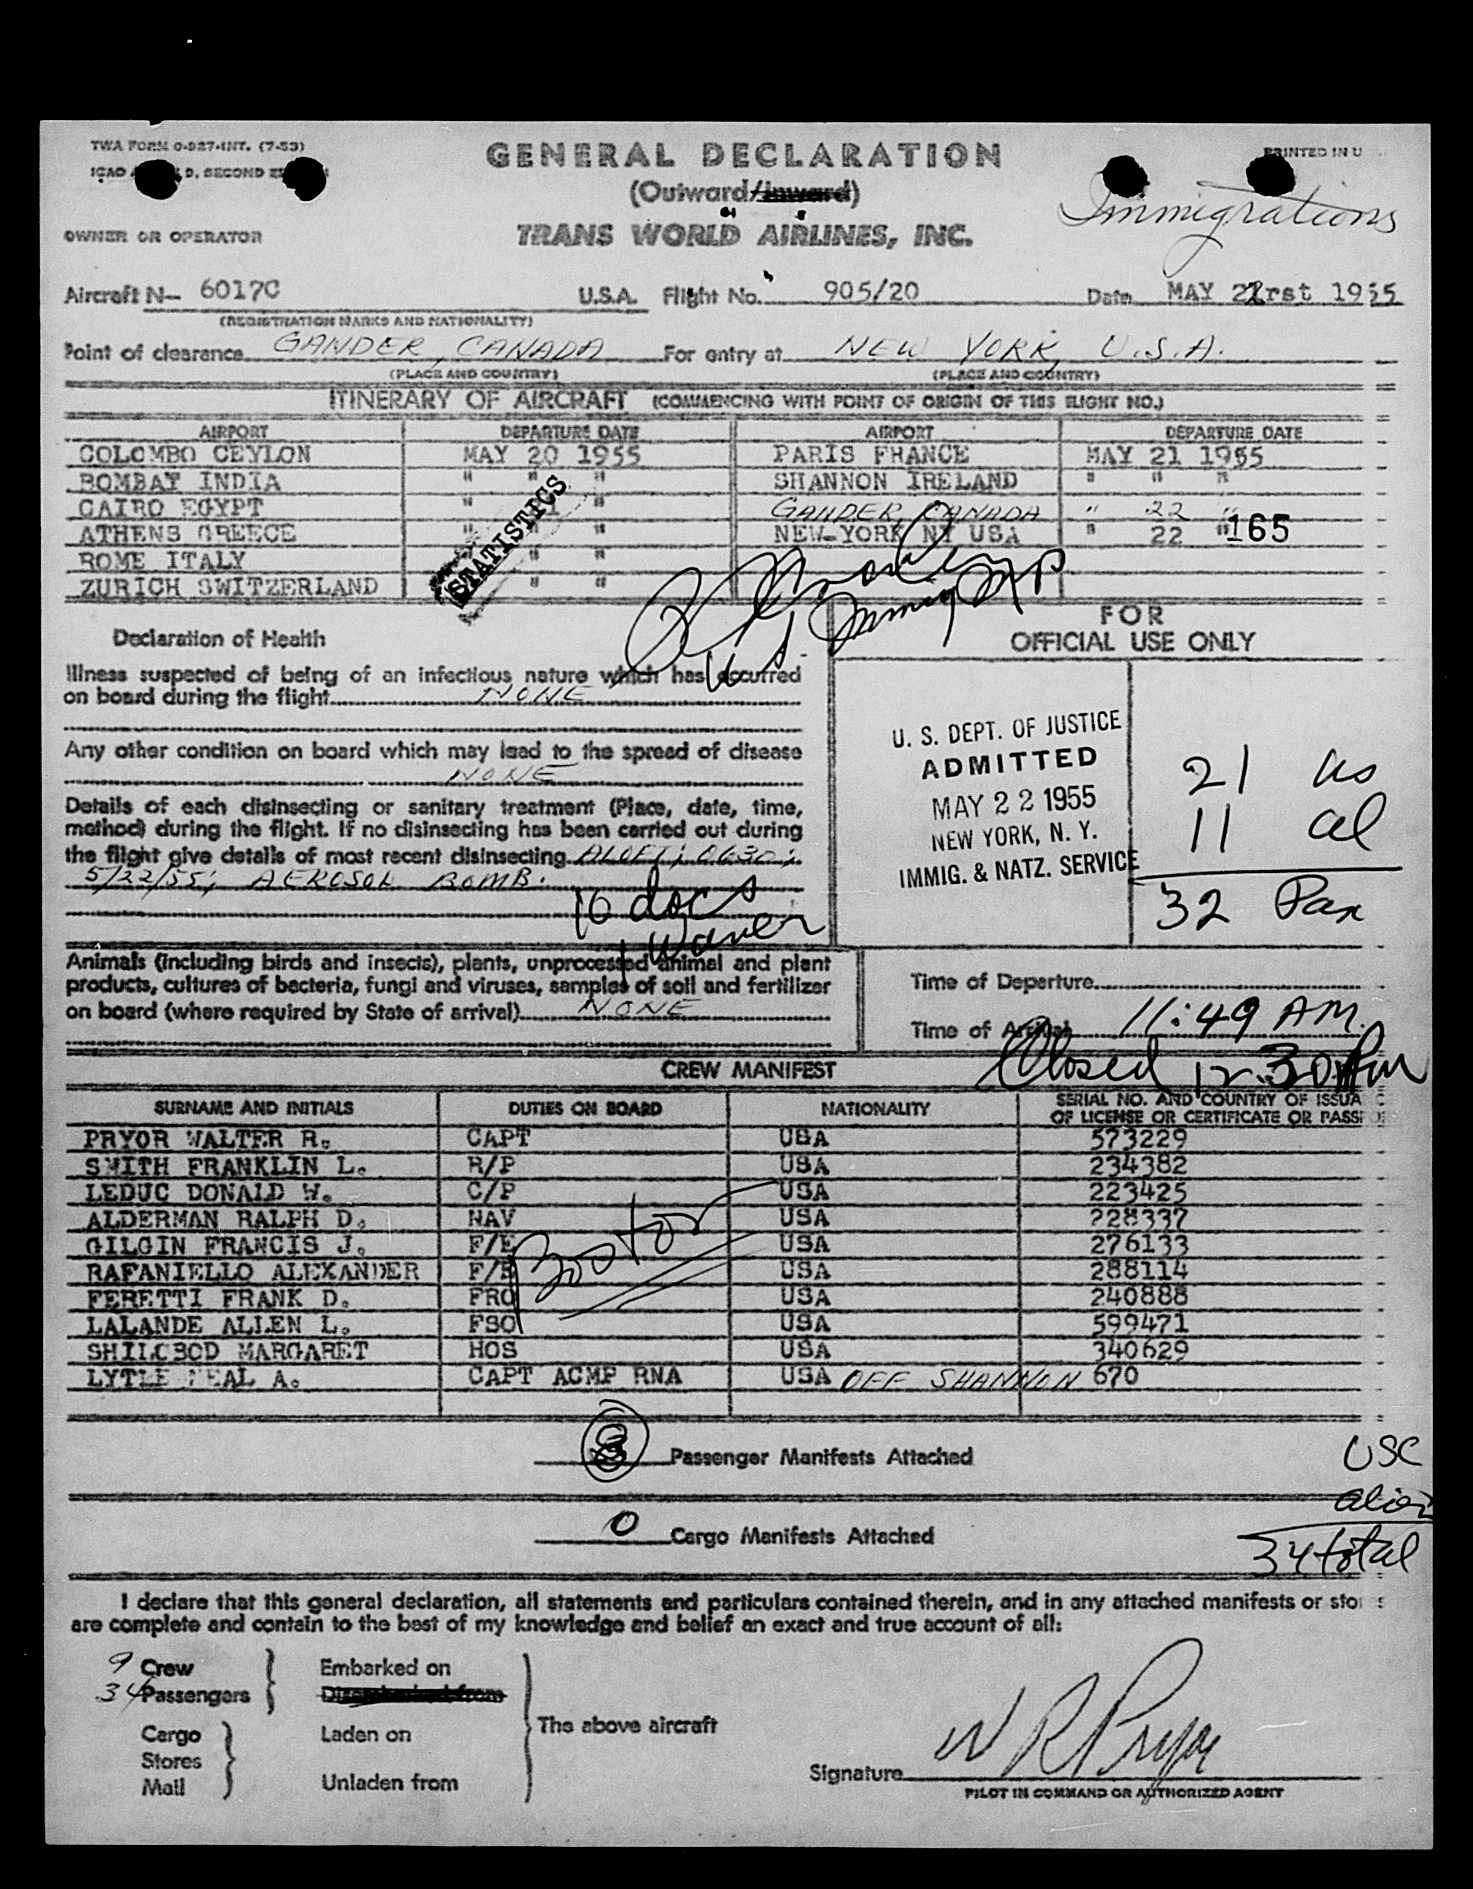 TWA FORM O-927-INT. (7-53)
ICAO D, SECOND
PRINTED IN U
GENERAL DECLARATION
(Outward/Inward)
Immigrations
OWNER OR OPERATOR
TRANS WORLD AIRLINES, INC.
Aircraft N- 6017C U.S.A. Flight No. 905/20 Date MAY 22rst 1955
(REGISTRATION MARKS AND NATIONALITY)
Point of clearance GANDER, CANADA For entry at NEW YORK, U.S.A.
(PLACE AND COUNTRY) (PLACE AND COUNTRY)
ITINERARY OF AIRCRAFT (COMMENCING WITH POINT OF ORIGIN OF THIS FLIGHT NO.)
AIRPORT DEPARTURE DATE AIRPORT DEPARTURE DATE
COLOMBO CEYLON MAY 20 1955 PARIS FRANCE MAY 21 1955
BOMBAY INDIA " " " SHANNON IRELAND " " "
CAIRO EGYPT " 21 " GANDER, CANADA " 22 "
ATHENS GREECE " " " NEW-YORK NY USA " 22 " 165
ROME ITALY " "
ZURICH SWITZERLAND " "
STATISTICS
U S Immig
FOR
OFFICIAL USE ONLY
Declaration of Health
Illness suspected of being of an infectious nature which has occurred
on board during the flight NONE
Any other condition on board which may lead to the spread of disease
NONE
Details of each disinsecting or sanitary treatment (Place, date, time,
method) during the flight. If no disinsecting has been carried out during
the flight give details of most recent disinsecting ALOFT; 0630;
5/22/55; AEROSOL BOMB.
10 docs
1 Waver
U. S. DEPT. OF JUSTICE
ADMITTED
MAY 22 1955
NEW YORK, N. Y.
IMMIG. & NATZ. SERVICE
21 us
11 al
32 Pax
Animals (including birds and insects), plants, unprocessed animal and plant
products, cultures of bacteria, fungi and viruses, samples of soil and fertilizer
on board (where required by State of arrival) NONE
Time of Departure
Time of Arrival 11:49 AM.
Closed 12:30 Pm
CREW MANIFEST
SURNAME AND INITIALS DUTIES ON BOARD NATIONALITY SERIAL NO. AND COUNTRY OF ISSUA
OF LICENSE OR CERTIFICATE OR PASS
PRYOR WALTER R. CAPT USA 573229
SMITH FRANKLIN L. R/P USA 234382
LEDUC DONALD W. C/P USA 223425
ALDERMAN RALPH D. NAV USA 228337
GILGIN FRANCIS J. F/E USA 276133
RAFANIELLO ALEXANDER F/E USA 288114
FERETTI FRANK D. FRO USA 240888
LALANDE ALLEN L. FSO USA 599471
SHILOBOD MARGARET HOS USA 340629
LYTLE NEAL A. CAPT ACMP RNA USA OFF SHANNON 670
3 Passenger Manifests Attached
USC
alien
34 total
0 Cargo Manifests Attached
I declare that this general declaration, all statements and particulars contained therein, and in any attached manifests or stor
are complete and contain to the best of my knowledge and belief an exact and true account of all:
9 Crew
34 Passengers
Embarked on
Disembarked from
Cargo
Stores
Mail
Laden on
Unladen from
The above aircraft
Signature W R Pryor
PILOT IN COMMAND OR AUTHORIZED AGENT